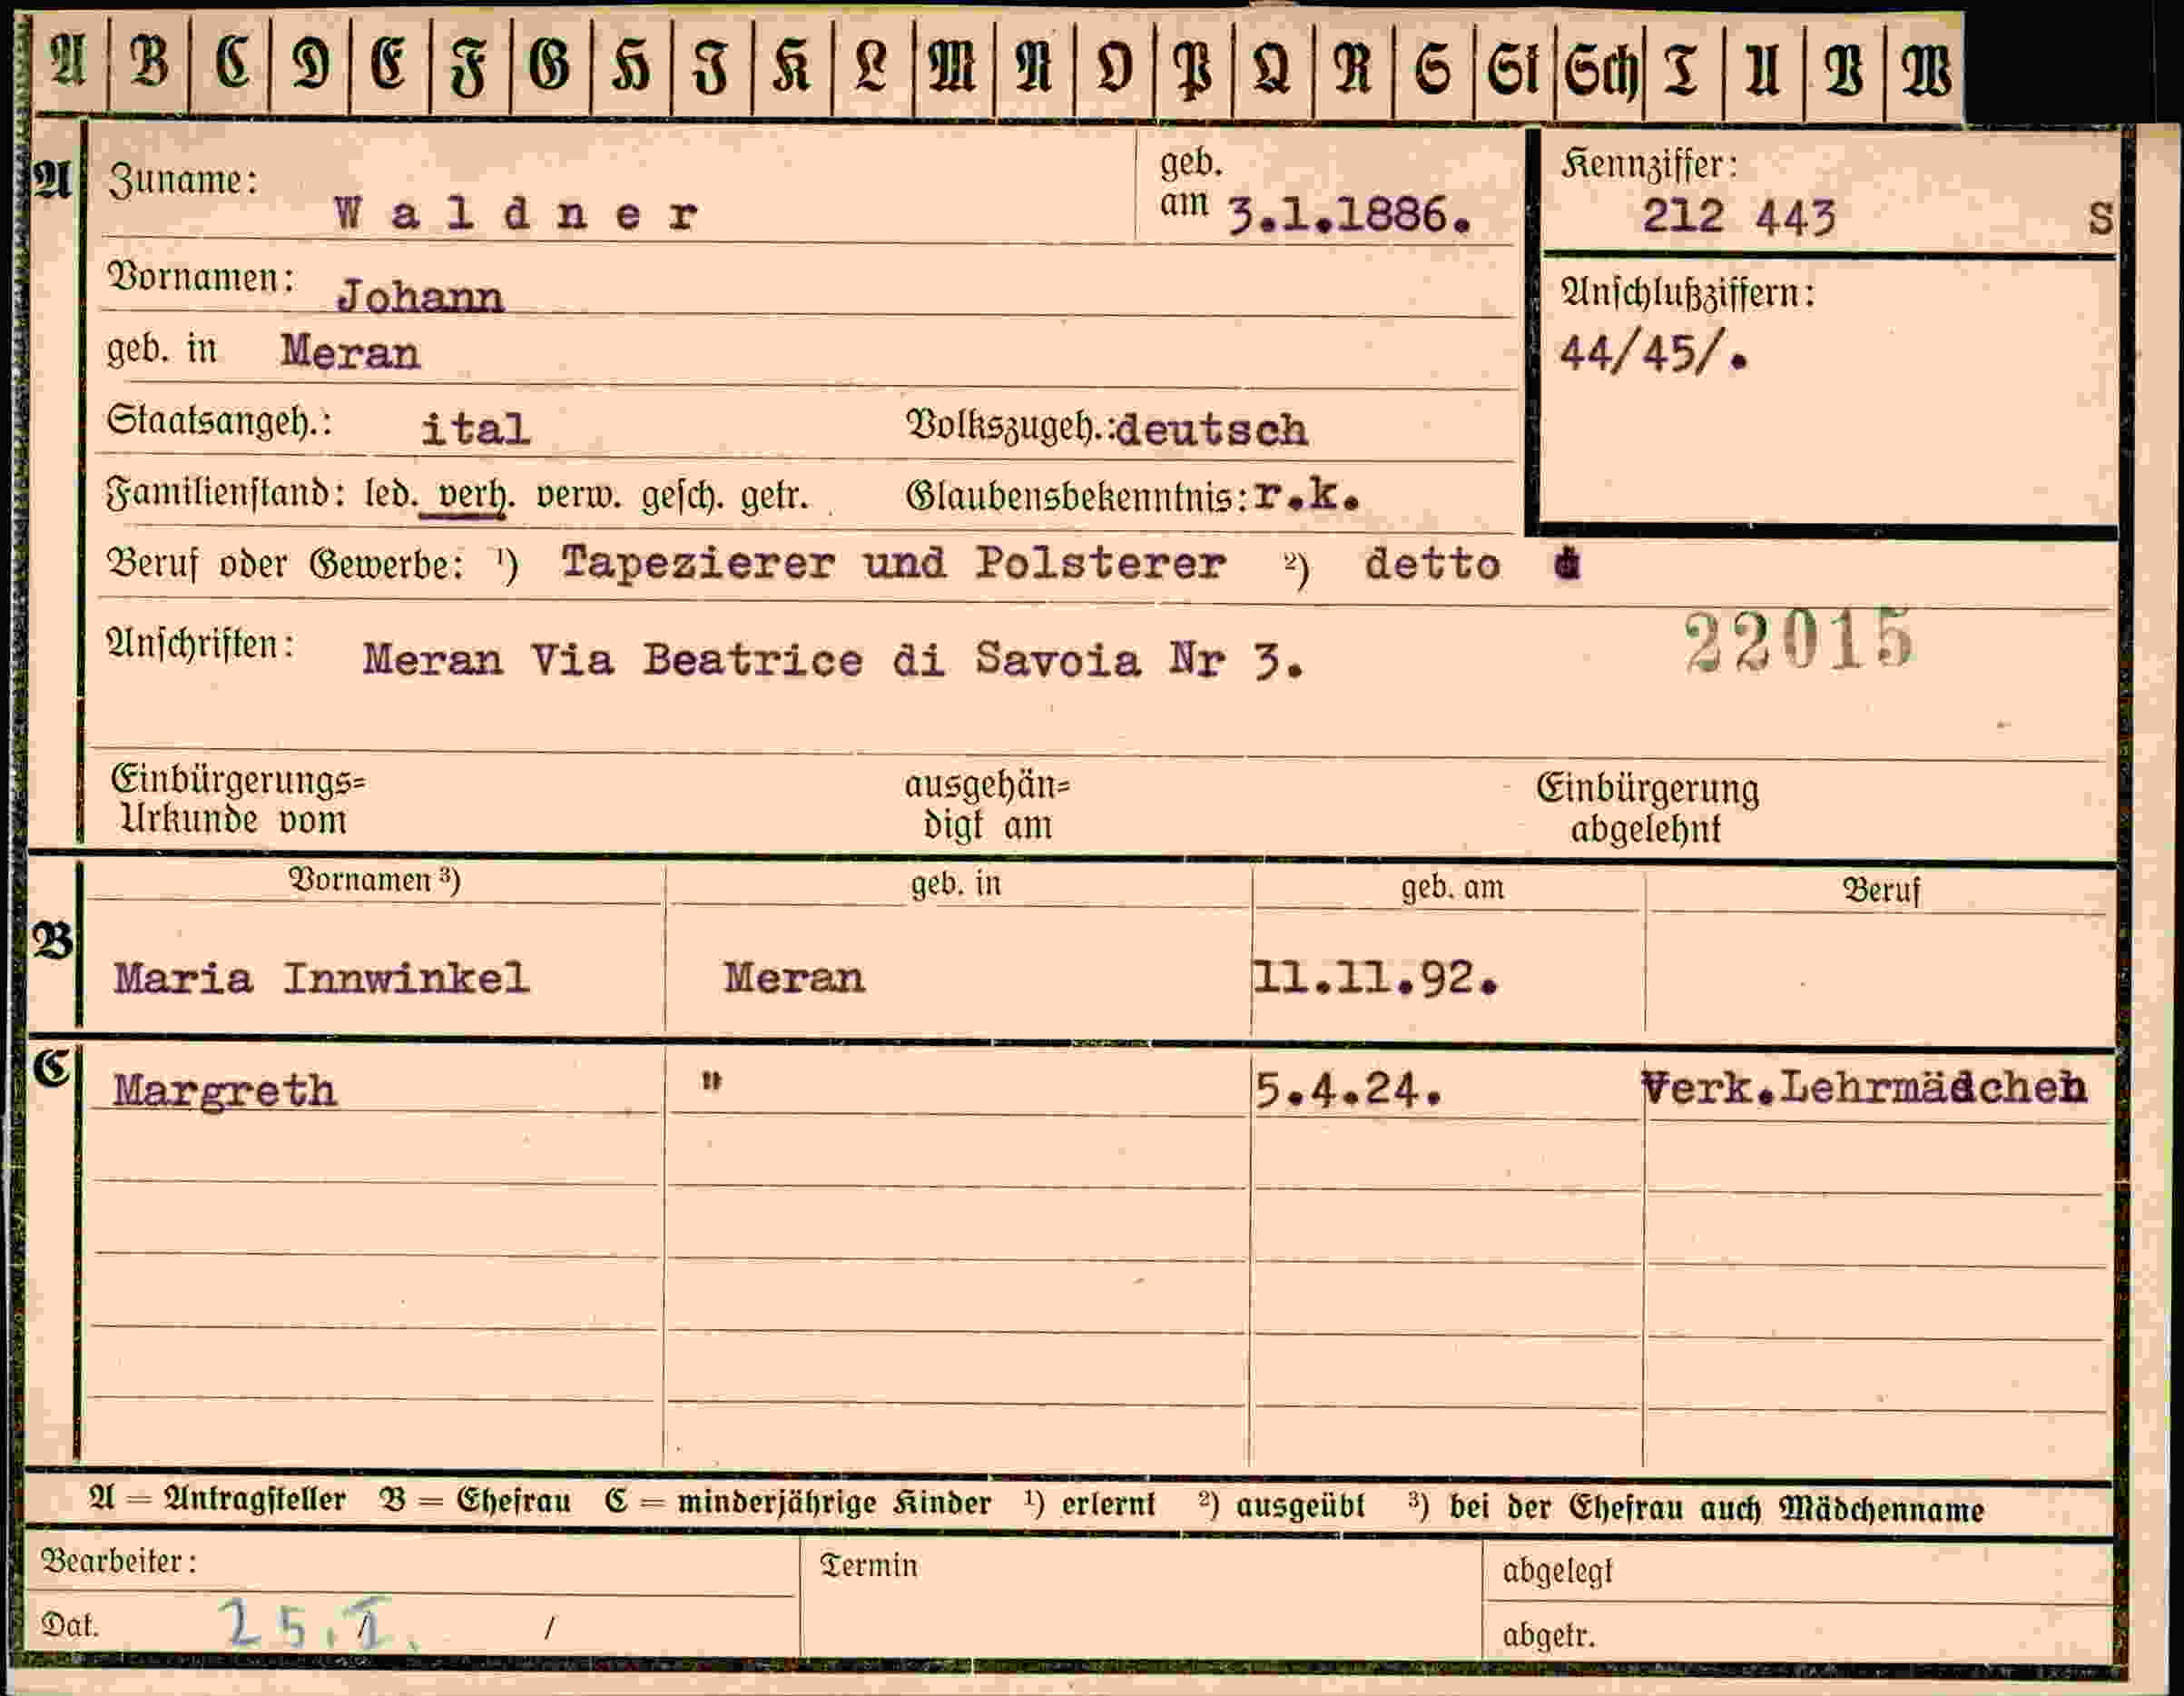 A B C D E F G H J K L M N O P Q R S St Sch T U V W
A
Zuname: Waldner
geb. am 3.1.1886.
Kennziffer: 212 443 S
Vornamen: Johann
Anschlußziffern:
44/45/.
geb. in Meran
Staatsangeh.: ital Volkszugeh.: deutsch
Familienstand: led. verh. verw. gesch. getr. Glaubensbekenntnis: r.k.
Beruf oder Gewerbe: ¹) Tapezierer und Polsterer ²) detto
Anschriften: Meran Via Beatrice di Savoia Nr 3.
22015
Einbürgerungs=
Urkunde vom
ausgehän=
digt am
Einbürgerung
abgelehnt
Vornamen ³) geb. in geb. am Beruf
B
Maria Innwinkel Meran 11.11.92.
C
Margreth " 5.4.24. Verk.Lehrmädchen
A = Antragsteller B = Ehefrau C = minderjährige Kinder ¹) erlernt ²) ausgeübt ³) bei der Ehefrau auch Mädchenname
Bearbeiter: Termin abgelegt
Dat. 25.I. / abgetr.